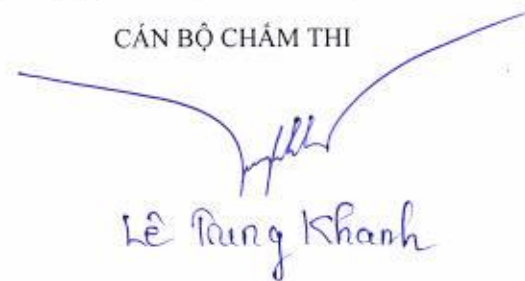 CÁN BỘ CHẤM THI
Lê Trung Khanh